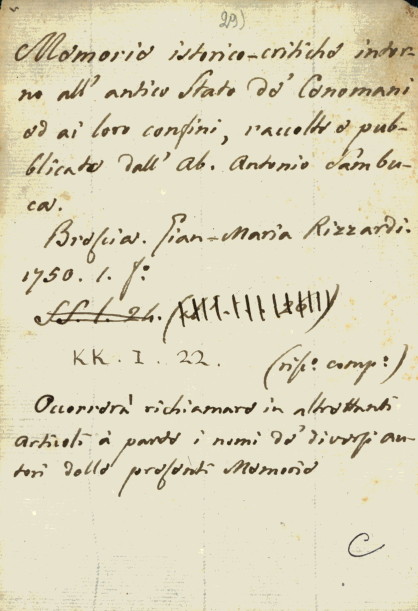 29)
Memorie istorico-critiche intor-
no all' antico Stato de' Cenomani
ed ai loro confini, raccolte e pub-
blicate dall' Ab. Antonio Sambu-
ca.
Brescia. Gian-Maria Rizzardi.
1750. 1. f.º
SS. I. 24.
KK. I. 22.
(risº. compº.)
Occorrerà richiamare in altrettanti
articoli à parte i nomi de' diversi au-
tori delle presenti Memorie
C